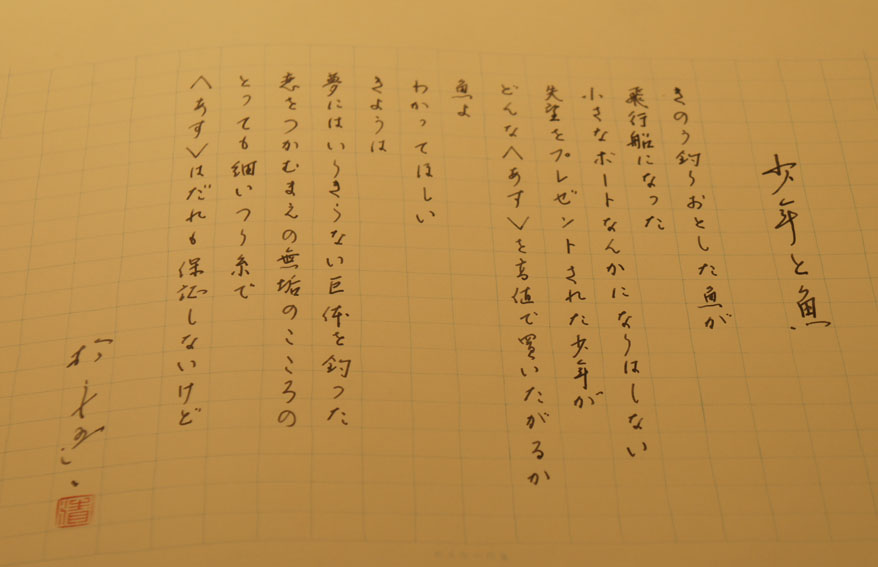 少年と魚
きのう釣りおとした魚が
飛行船になった
小さなボートなんかになりはしない
失望をプレゼントされた少年が
どんなヘあすVを高値で買いたがるか
魚よ
わかってほしい
きようは
夢にはいりきらない巨体を釣った
恋をつかむまえの無垢のこころの
とっても細いつり糸で
〈あす〉はだれも保証しないけど